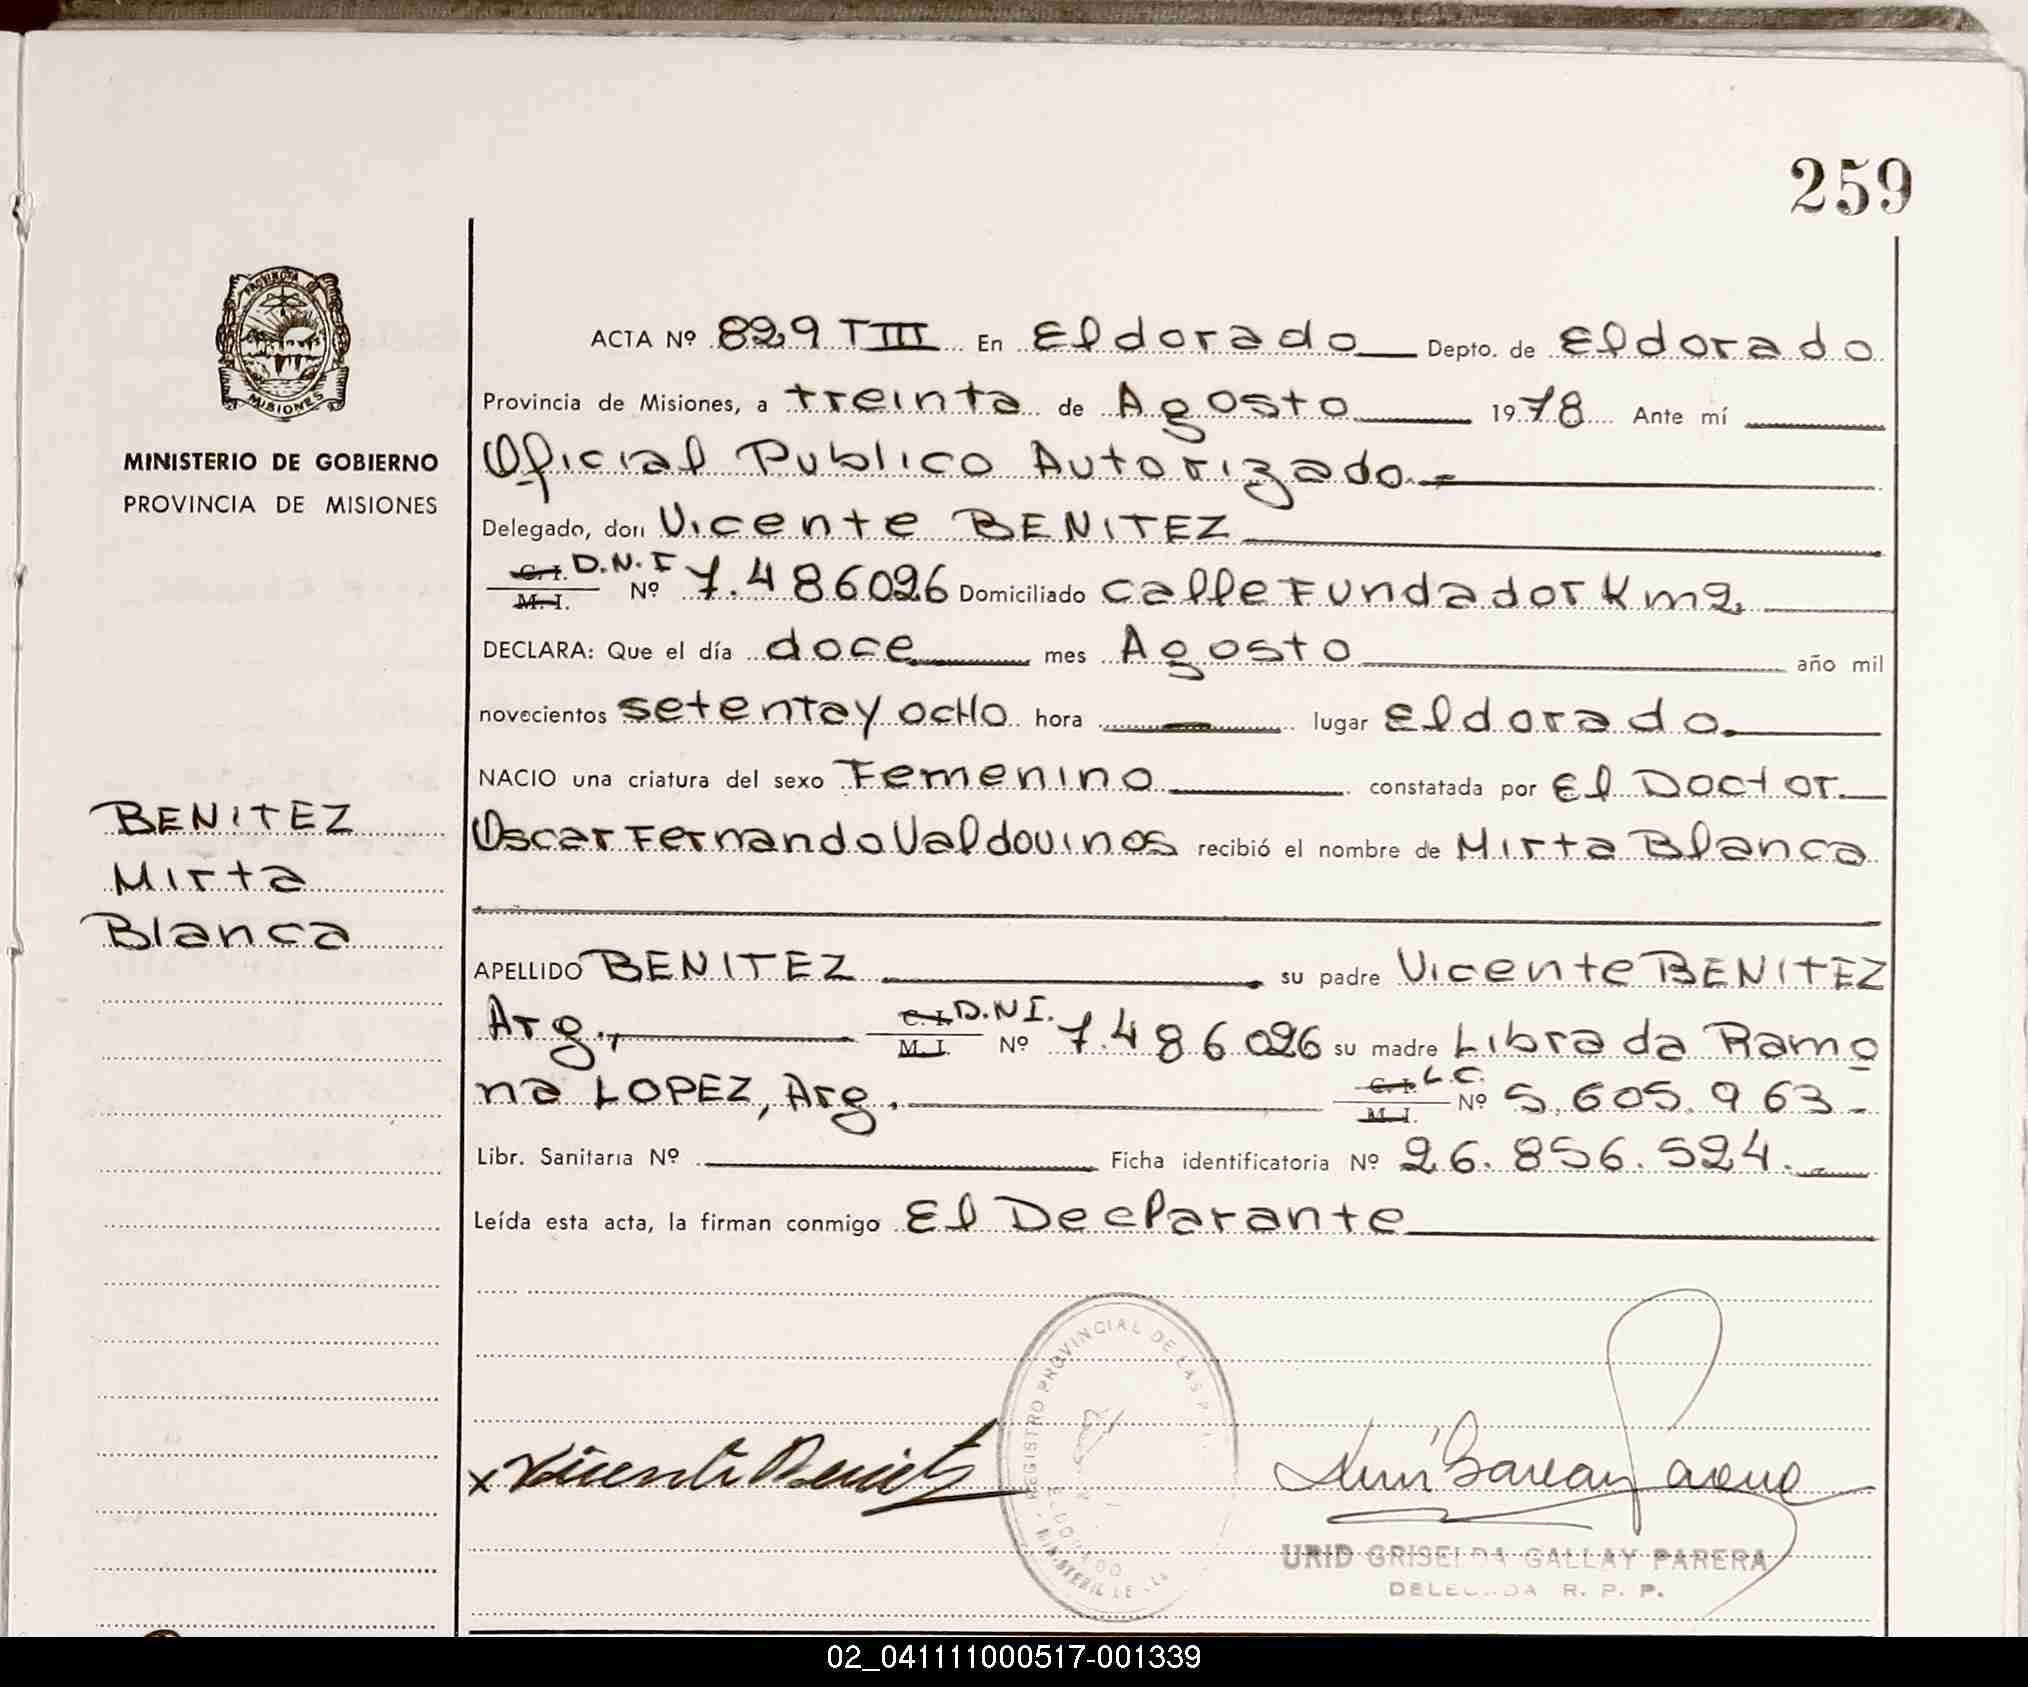 259
PROVINCIA DE
MISIONES
MINISTERIO DE GOBIERNO
PROVINCIA DE MISIONES
BENITEZ
Mirta
Blanca
ACTA Nº 829 T III En Eldorado Depto. de Eldorado
Provincia de Misiones, a treinta de Agosto 1978 Ante mí
Oficial Publico Autorizado.-
Delegado, don Vicente BENITEZ
C. I. D.N.I
M. I. Nº 7.486026 Domiciliado calle Fundador Km 2,
DECLARA: Que el día doce mes Agosto año mil
novecientos setenta y ocHo hora — lugar Eldorado.
NACIO una criatura del sexo Femenino constatada por El Doctor
Oscar Fernando Valdovinos recibió el nombre de Mirta Blanca
APELLIDO BENITEZ su padre Vicente BENITEZ
Arg., C. I. D.N I.
M. I. Nº 7.486026 su madre Librada Ramo
na LOPEZ, Arg. C. I. L.C.
M. I. Nº 5.605.963-
Libr. Sanitaria Nº Ficha identificatoria Nº 26.856.524.
Leída esta acta, la firman conmigo El Declarante
REGISTRO PROVINCIAL DE LAS
ELDORADO
x Vicente Benitez
URID GRISELDA GALLAY PARERA
DELEGADA R. P. P.
02_041111000517-001339